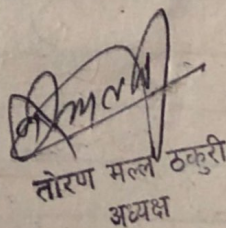 तोरण मल्ल ठकुरी
अध्यक्ष